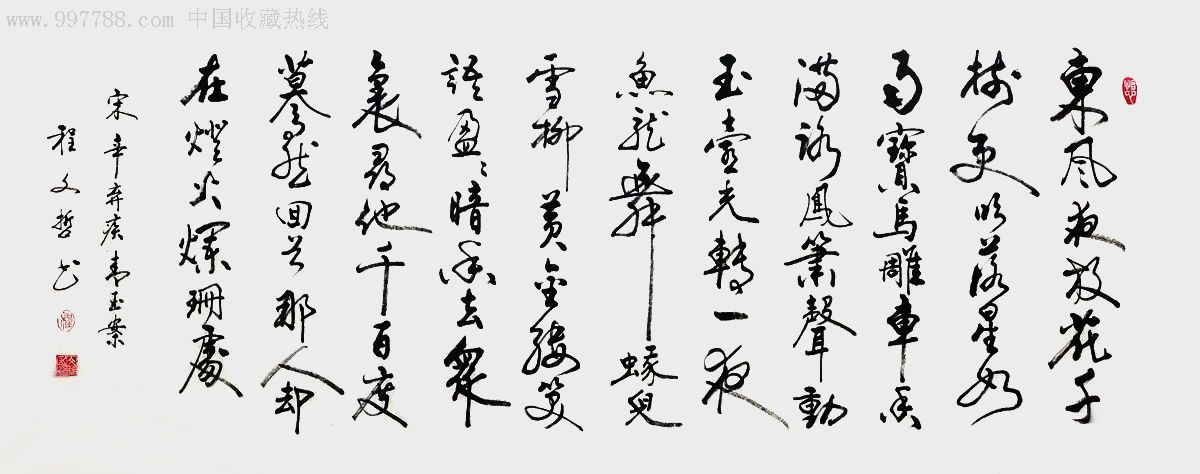 www.997788.com 中国收藏热线
東風夜放花千
樹更吹落星如
雨寶馬雕車香
滿路鳳簫聲動
玉壺光轉一夜
魚龍舞蛾兒
雪柳黃金縷笑
語盈盈暗香去衆
裏尋他千百度
驀然回首那人却
在燈火爛珊處
宋辛弃疾青玉案
程文哲书